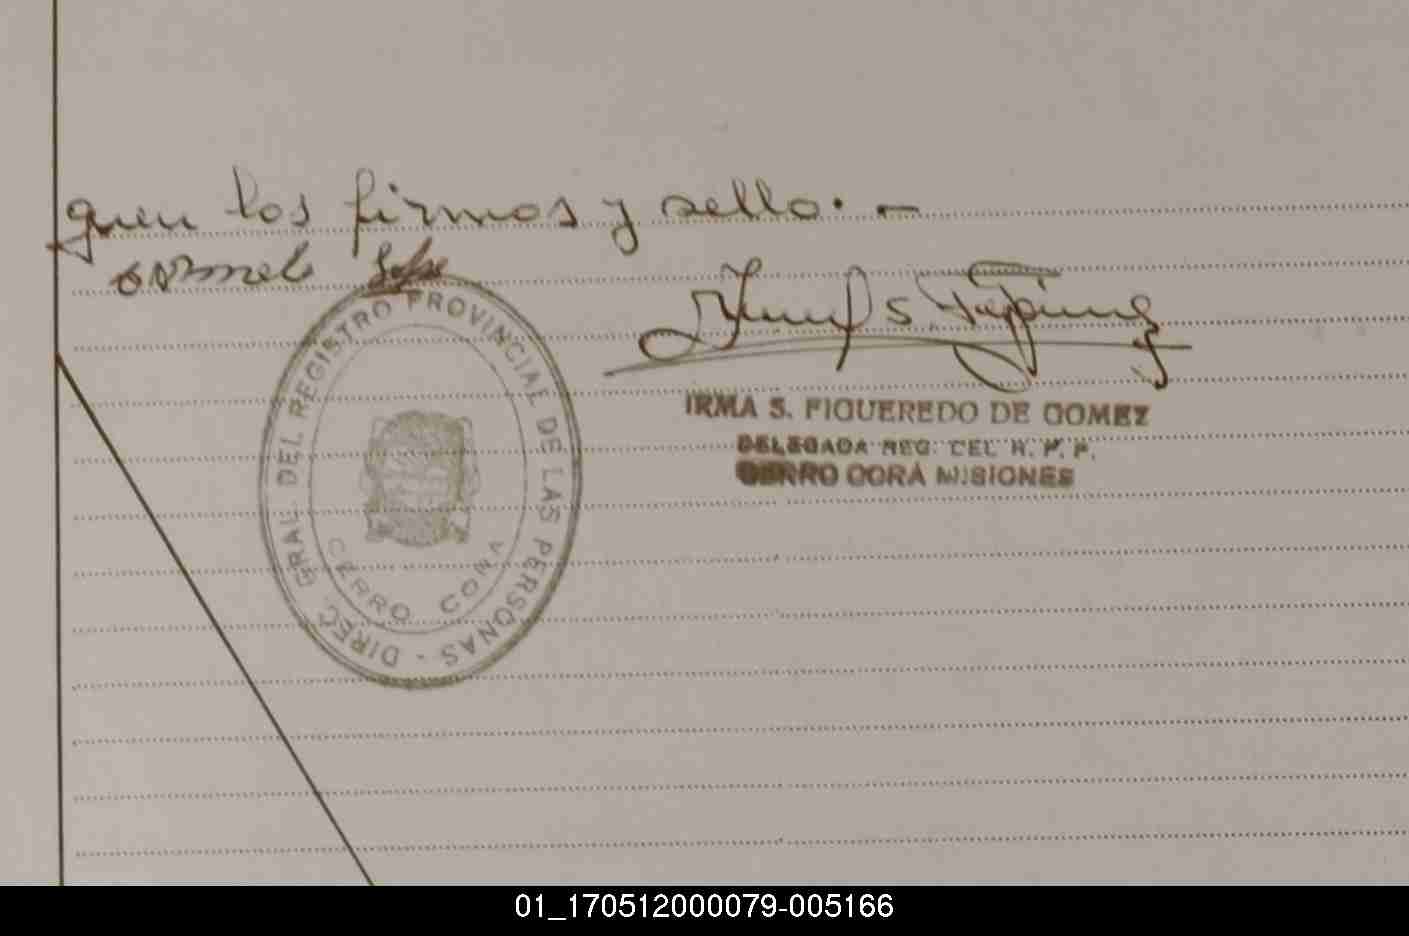 guen las firmas y sello. —
DIREC. GRAL. DEL REGISTRO PROVINCIAL DE LAS PERSONAS -
CERRO CORA
IRMA S. FIGUEREDO DE GOMEZ
DELEGADA REG. DEL R. P. P.
CERRO CORÁ MISIONES
01_170512000079-005166